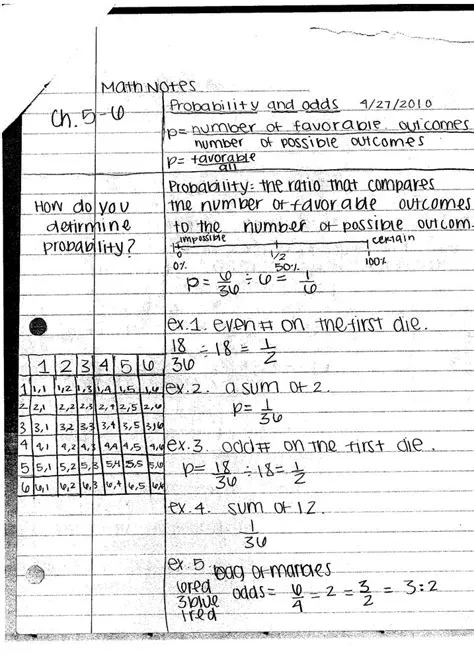 Math Notes
Ch. 5-6
Probability and odds 4/27/2010
p= number of favorable outcomes
number of possible outcomes
p= favorable
all
How do you
detirmine
probability?
Probability: the ratio that compares
the number of favorable outcomes
to the number of possible outcom.
impossible certain
0 1/2 1
0% 50% 100%
p= 6/36 ÷ 6 = 1/6
ex. 1. even # on the first die.
18/36 ÷ 18 = 1/2
ex. 2. a sum of 2.
p= 1/36
ex. 3. odd # on the first die.
p= 18/36 ÷ 18 = 1/2
ex. 4. sum of 12.
1/36
1 2 3 4 5 6
1 1,1 1,2 1,3 1,4 1,5 1,6
2 2,1 2,2 2,3 2,4 2,5 2,6
3 3,1 3,2 3,3 3,4 3,5 3,6
4 4,1 4,2 4,3 4,4 4,5 4,6
5 5,1 5,2 5,3 5,4 5,5 5,6
6 6,1 6,2 6,3 6,4 6,5 6,6
ex. 5. bag of marbles
6 red
3 blue
1 red
odds = 6/4 ÷ 2 = 3/2 = 3:2